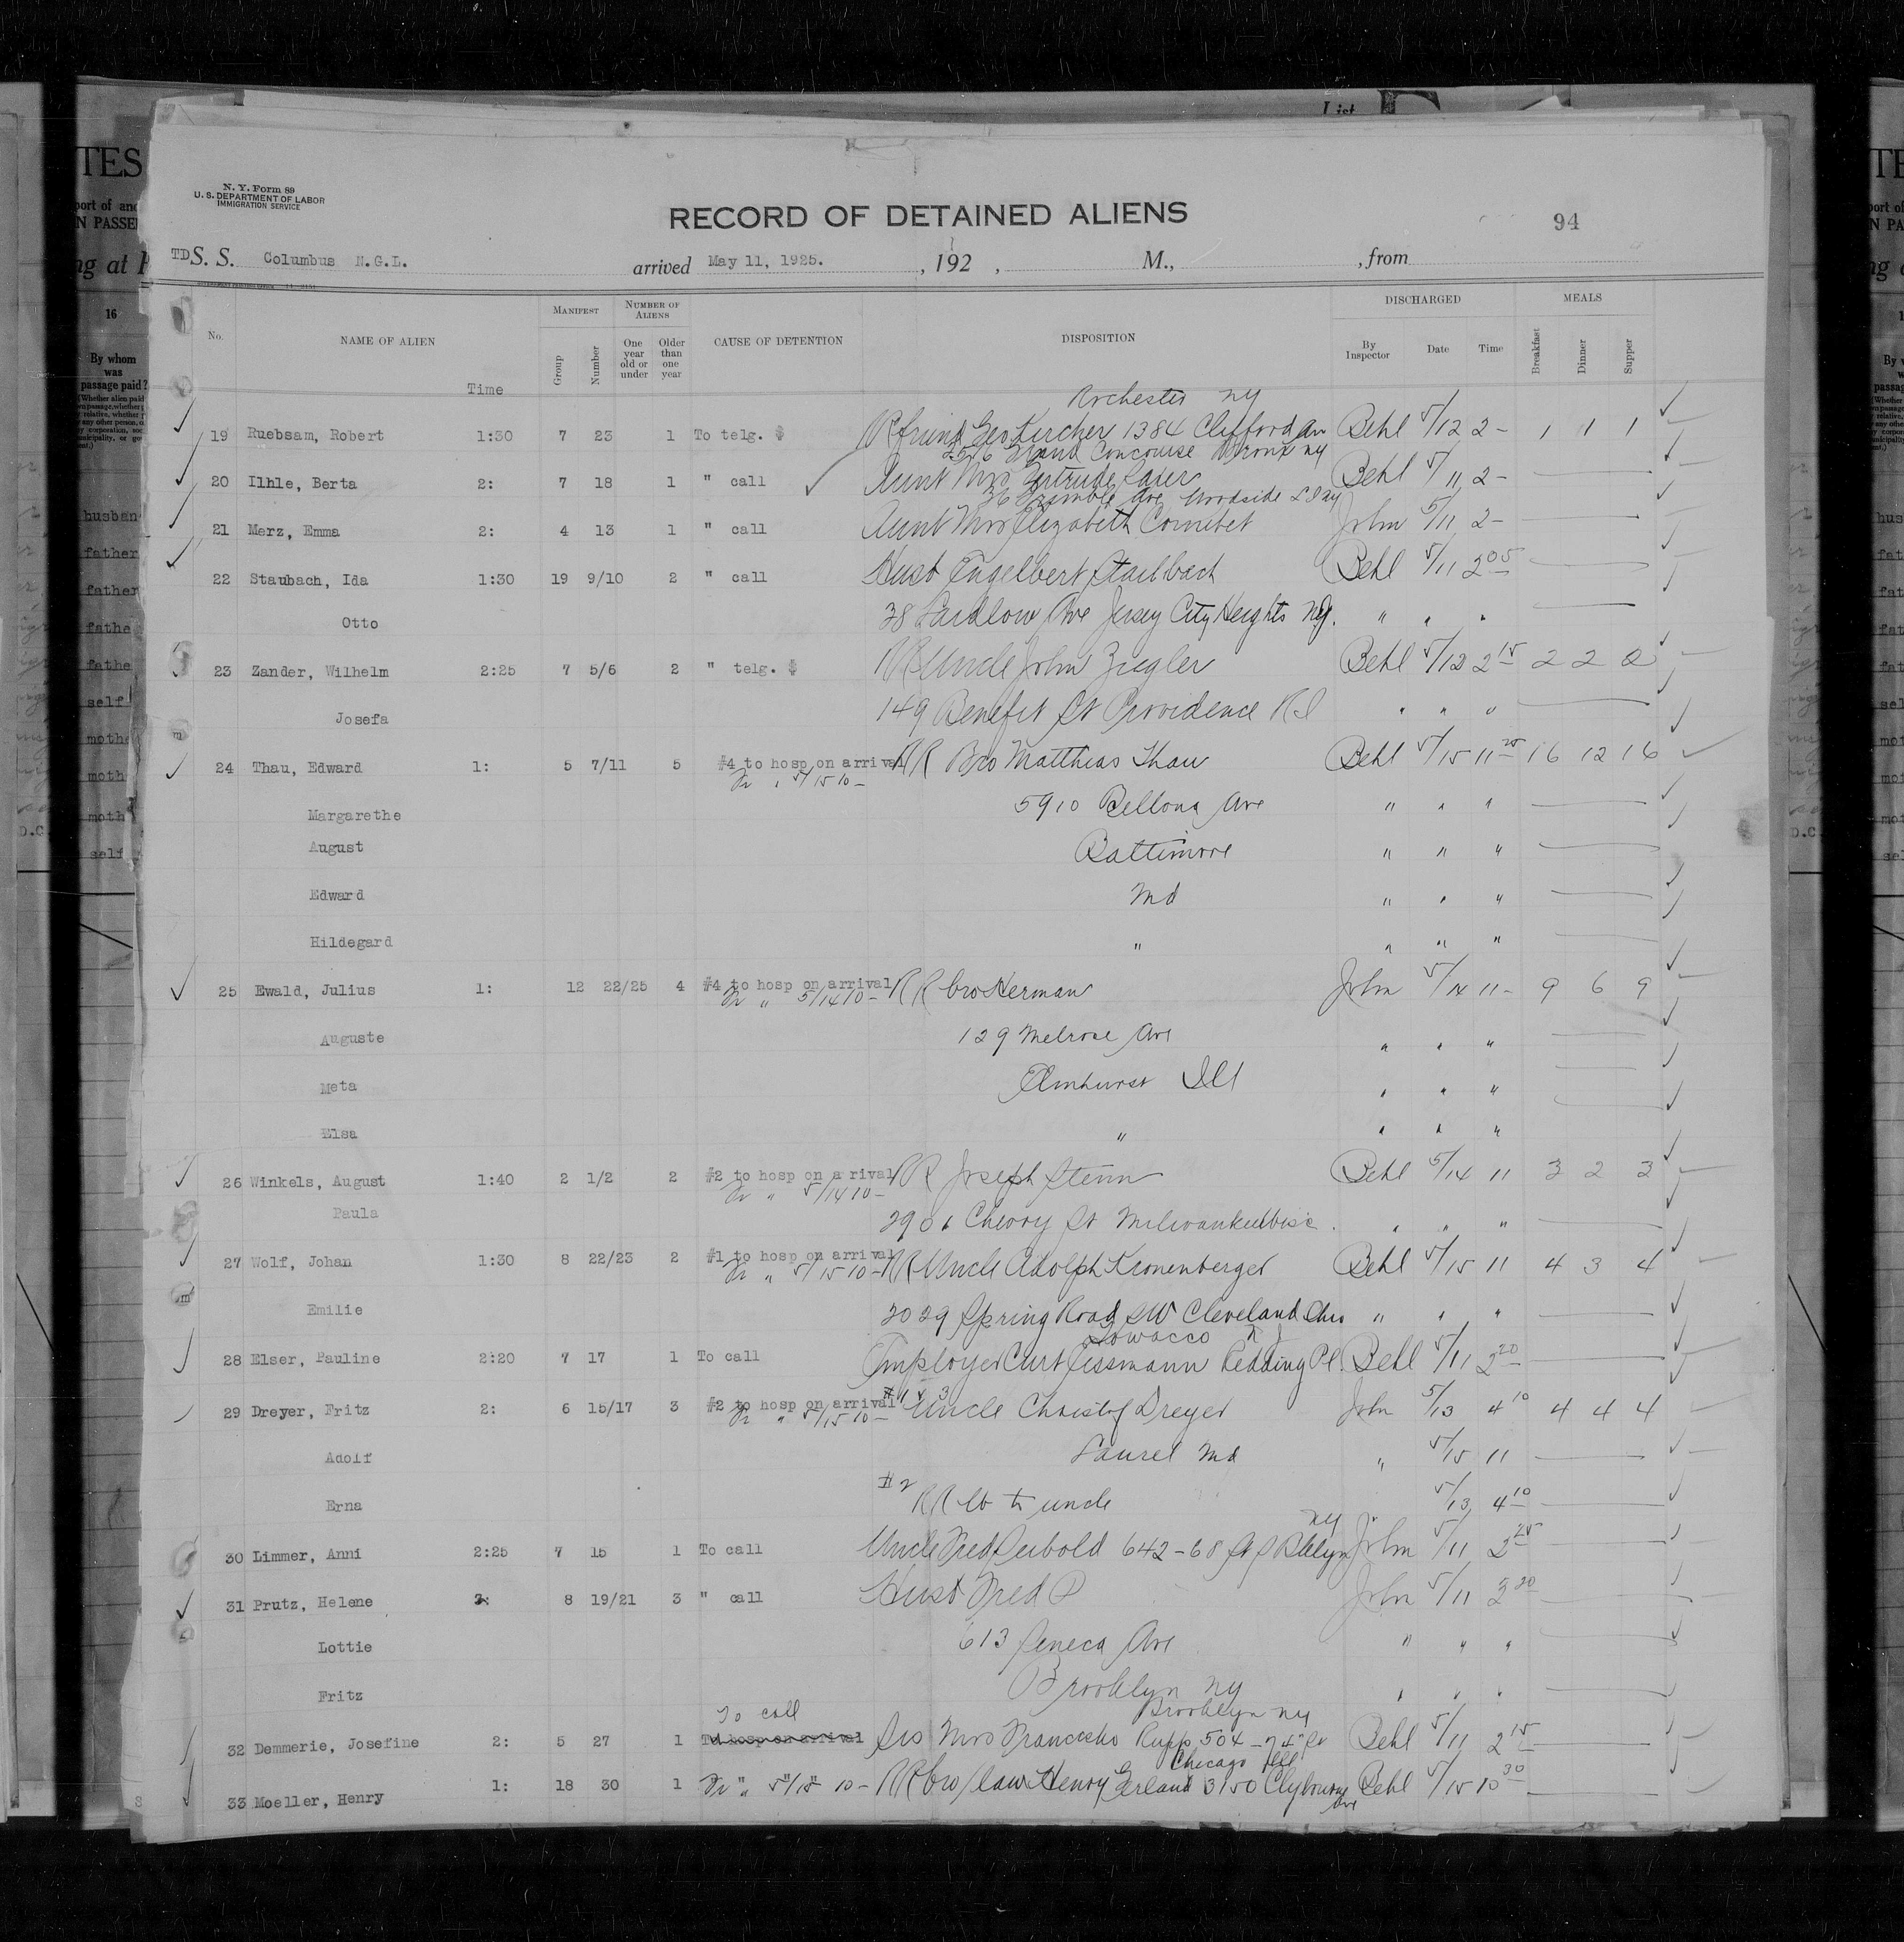 List
N. Y. Form 89
U. S. DEPARTMENT OF LABOR
IMMIGRATION SERVICE
RECORD OF DETAINED ALIENS
94
TD S. S. Columbus N.G.L. arrived May 11, 1925. , 192 , M., , from
No. NAME OF ALIEN Time MANIFEST Group Number NUMBER OF ALIENS One year old or under Older than one year CAUSE OF DETENTION DISPOSITION DISCHARGED By Inspector Date Time MEALS Breakfast Dinner Supper
Rochester NY
19 Ruebsam, Robert 1:30 7 23 1 To telg. RR friend Geo Kircher 1384 Clifford Av Behl 5/12 2- 1 1 1
Grand Concourse Bronx NY
20 Ilhle, Berta 2: 7 18 1 " call Aunt Mrs Gertrude Behl 5/11 2-
36 Ave Woodside L I NY
21 Merz, Emma 2: 4 13 1 " call Aunt Mrs Elizabeth John 5/11 2-
22 Staubach, Ida 1:30 19 9/10 2 " call Husb Engelbert Staubach Behl 5/11 2 05
Otto 38 Laidlow Ave Jersey City Heights NJ. " " "
23 Zander, Wilhelm 2:25 7 5/6 2 " telg. RR Uncle John Ziegler Behl 5/12 2 15 2 2 2
Josefa 149 Benefit St Providence RI " " "
24 Thau, Edward 1: 5 7/11 5 #4 to hosp on arrival RR Bro Matthias Thau Behl 5/15 11 25 16 12 16
5/15 10-
Margarethe 5910 Bellona Ave " " "
August Baltimore " " "
Edward Md " " "
Hildegard " " " "
25 Ewald, Julius 1: 12 22/25 4 #4 to hosp on arrival RR bro Herman John 5/14 11- 9 6 9
" 5/14 10-
Auguste 129 Melrose Ave " " "
Meta Elmhurst Ill " " "
Elsa " " " "
26 Winkels, August 1:40 2 1/2 2 #2 to hosp on a rival RR Joseph Stenn Behl 5/14 11 3 2 3
" 5/14 10-
Paula 2901 Cherry St Milwaukee Wisc. " " "
27 Wolf, Johan 1:30 8 22/23 2 #1 to hosp on arrival RR Uncle Adolph Kronenberger Behl 5/15 11 4 3 4
" 5/15 10-
Emilie 2029 Spring Road SW Cleveland Ohio " " "
Towacco N J
28 Elser, Pauline 2:20 7 17 1 To call Employer Curt Redding Pl. Behl 5/11 2 20
29 Dreyer, Fritz 2: 6 15/17 3 #2 to hosp on arrival #1 & 3 Uncle Christof Dreyer John 5/13 4 10 4 4 4
" 5/15 10-
Adolf Laurel Md " 5/15 11
Erna #2 RR to uncle 5/13 4 10
NY
30 Limmer, Anni 2:25 7 15 1 To call Uncle Fred Seibold 642-68 St Bklyn John 5/11 2 25
31 Prutz, Helene 2: 8 19/21 3 " call Husb Fred P John 5/11 3 20
Lottie 613 Seneca Ave " " "
Fritz Brooklyn NY " " "
To call Brooklyn NY
32 Demmerie, Josefine 2: 5 27 1 To hosp on arrival Sis Mrs Franciska Rupp 504-74" St Behl 5/11 2 15
Chicago Ill
33 Moeller, Henry 1: 18 30 1 " 5/15 10- RR bro/law Henry Gerland 3150 Clybourne Ave Behl 5/15 10 30